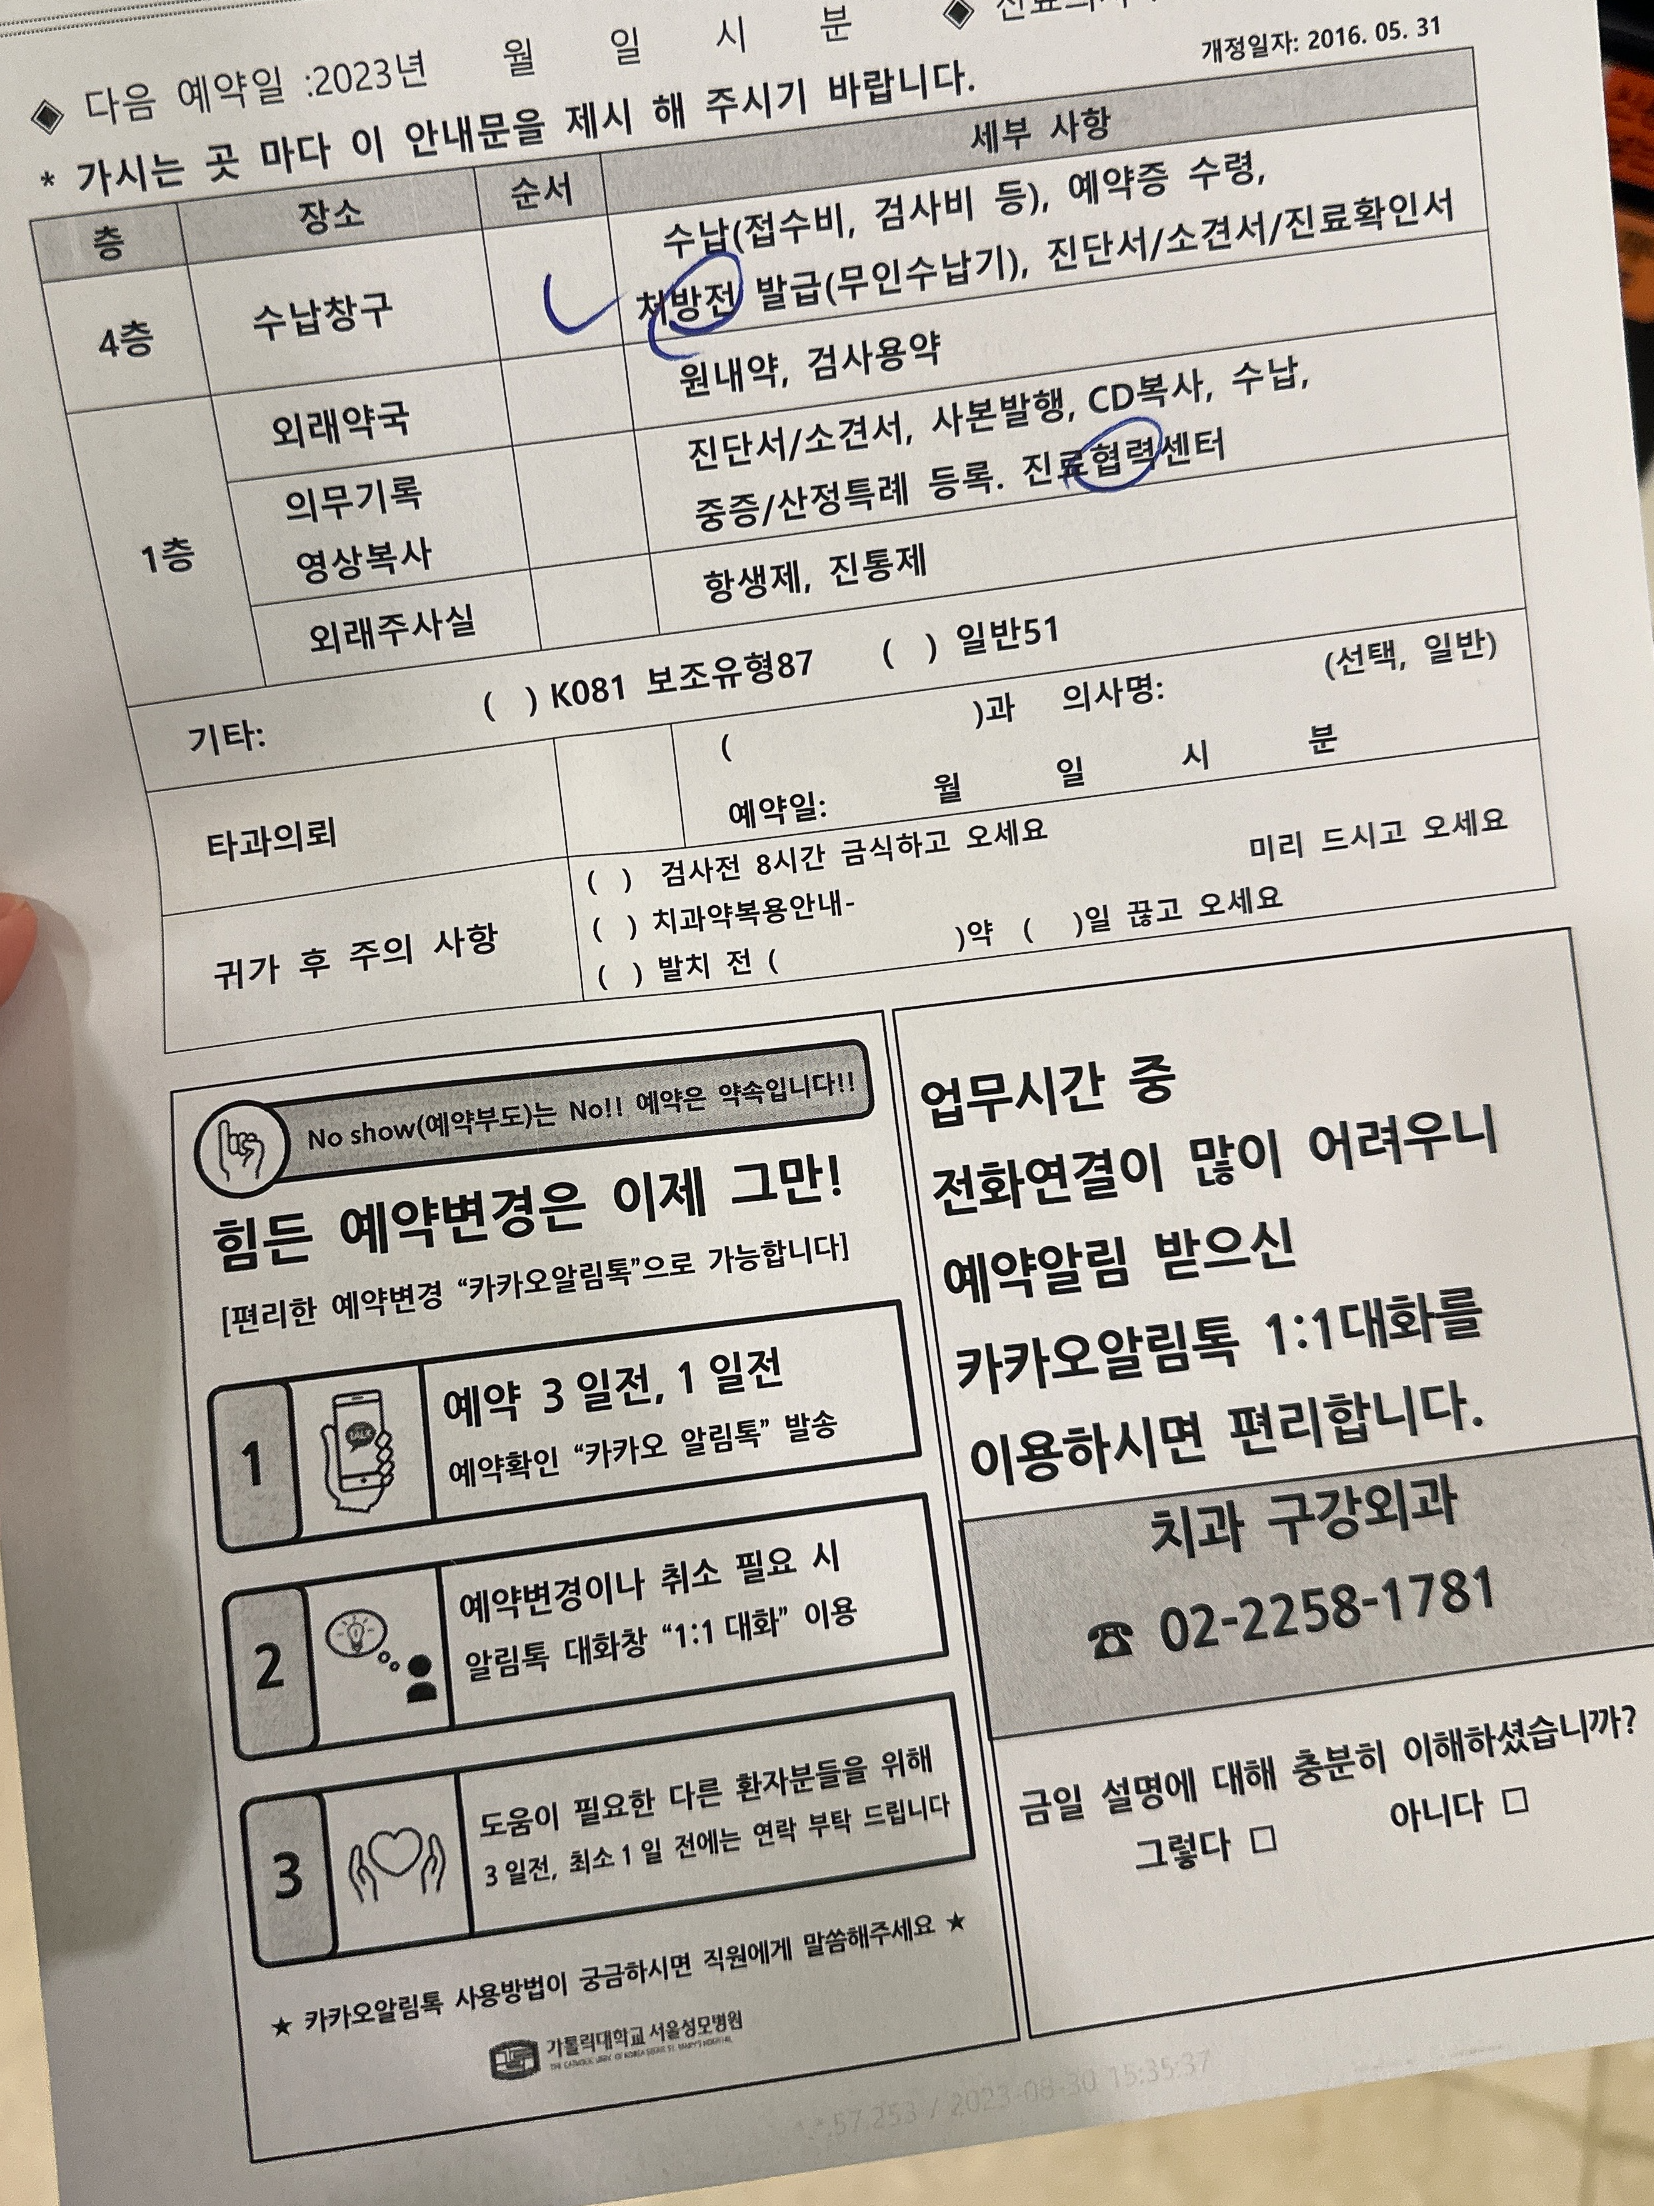 ◈ 다음 예약일 :2023년 월 일 시 분 ◈
개정일자: 2016. 05. 31
* 가시는 곳 마다 이 안내문을 제시 해 주시기 바랍니다.
층 장소 순서 세부 사항
4층 수납창구 수납(접수비, 검사비 등), 예약증 수령,
처방전 발급(무인수납기), 진단서/소견서/진료확인서
1층 외래약국 원내약, 검사용약
의무기록 진단서/소견서, 사본발행, CD복사, 수납,
영상복사 중증/산정특례 등록. 진료협력센터
외래주사실 항생제, 진통제
기타: ( ) K081 보조유형87 ( ) 일반51
타과의뢰 ( )과 의사명: (선택, 일반)
예약일: 월 일 시 분
귀가 후 주의 사항 ( ) 검사전 8시간 금식하고 오세요
( ) 치과약복용안내- 미리 드시고 오세요
( ) 발치 전 ( )약 ( )일 끊고 오세요
No show(예약부도)는 No!! 예약은 약속입니다!!
힘든 예약변경은 이제 그만!
[편리한 예약변경 “카카오알림톡”으로 가능합니다]
1 예약 3 일전, 1 일전
예약확인 “카카오 알림톡” 발송
2 예약변경이나 취소 필요 시
알림톡 대화창 “1:1 대화” 이용
3 도움이 필요한 다른 환자분들을 위해
3 일전, 최소 1 일 전에는 연락 부탁 드립니다
★ 카카오알림톡 사용방법이 궁금하시면 직원에게 말씀해주세요 ★
가톨릭대학교 서울성모병원
업무시간 중
전화연결이 많이 어려우니
예약알림 받으신
카카오알림톡 1:1대화를
이용하시면 편리합니다.
치과 구강외과
☎ 02-2258-1781
금일 설명에 대해 충분히 이해하셨습니까?
그렇다 □ 아니다 □
57.253 / 2023-08-30 15:35:37